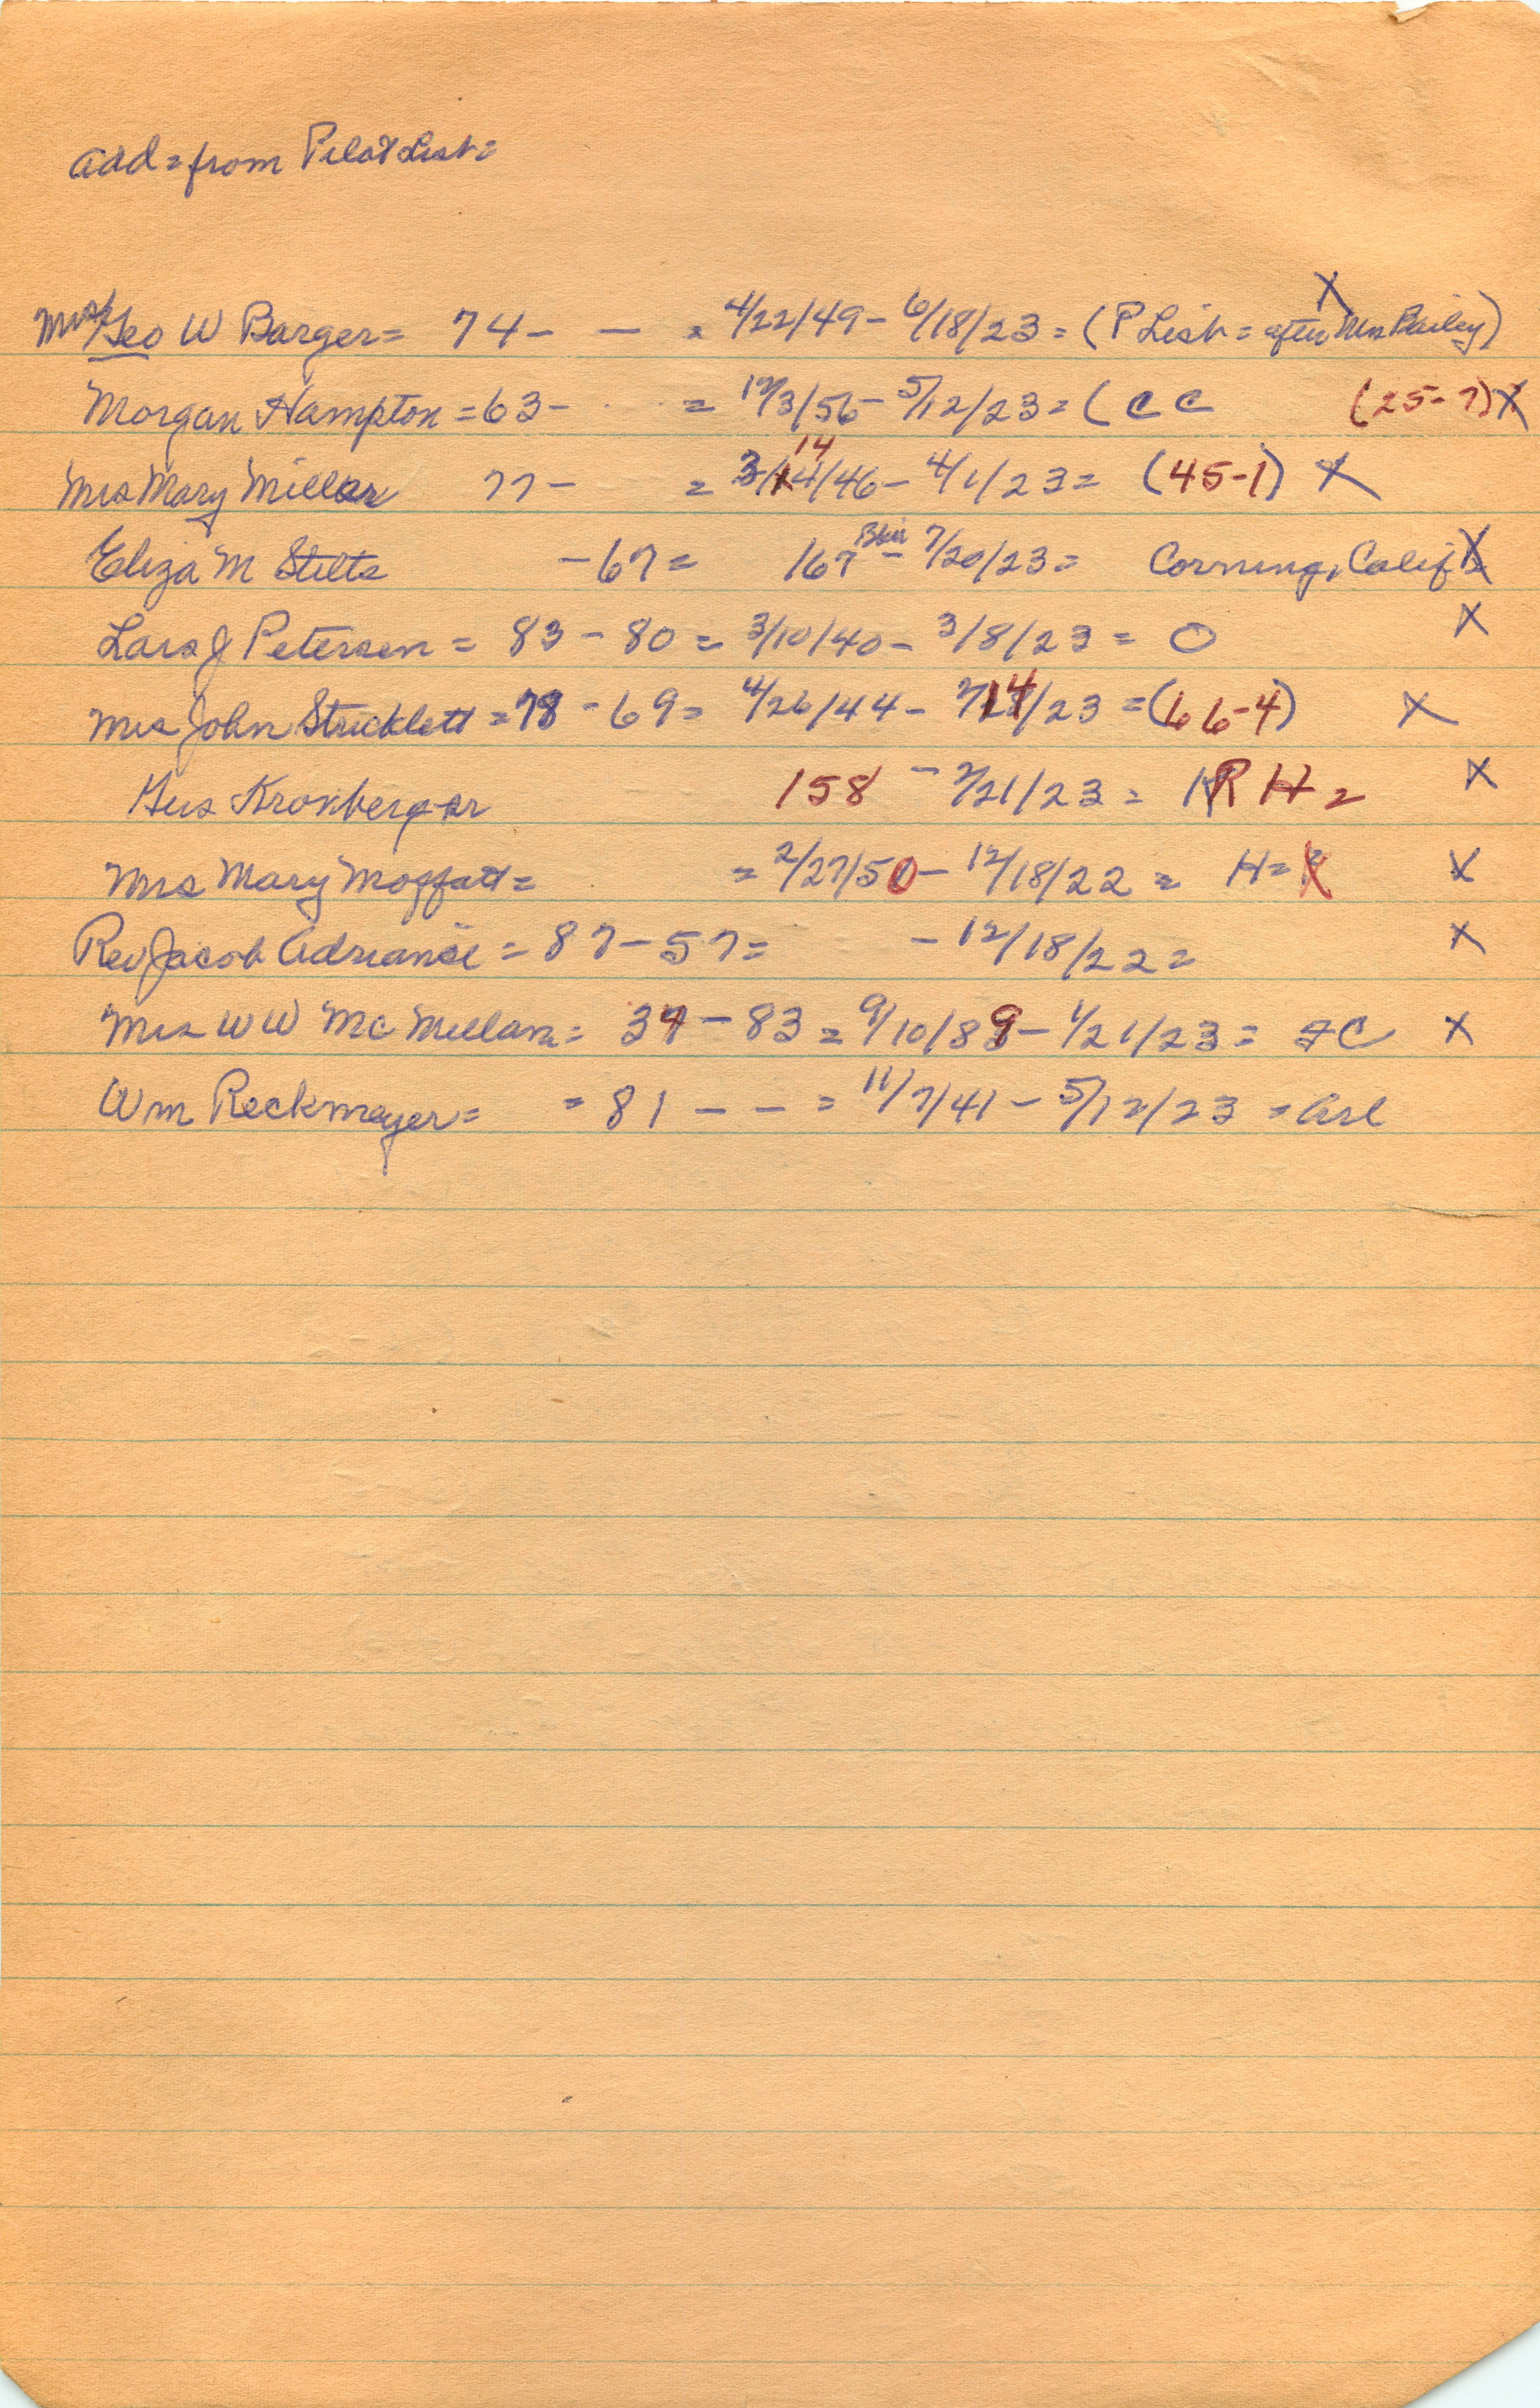 Add = from Pilot List =
Mrs Geo W Barger = 74 - - = 4/22/49 - 6/18/23 = (P List = after Mrs Bailey) X
Morgan Hampton = 63 - = 12/3/56 - 5/12/23 = (CC (25-7) X
Mrs Mary Millar 77 - = 3/14/46 - 4/1/23 = (45-1) X
Eliza M Stilts - 67 = 167 Blair - 7/20/23 = Corning, Calif X
Lars J Petersen = 83 - 80 = 3/10/40 - 3/8/23 = O X
Mrs John Stricklett = 78 - 69 = 4/26/44 - 2/14/23 = (66-4) X
Gus Kronberger 158 - 2/21/23 = RH = X
Mrs Mary Moffatt = = 2/27/50 - 12/18/22 = H = X
Rev Jacob Adriance = 87 - 57 = - 12/18/22 = X
Mrs WW McMillan = 34 - 83 = 9/10/89 - 1/21/23 = FC X
Wm Reckmeyer = = 81 - - = 11/7/41 - 5/12/23 = Arl